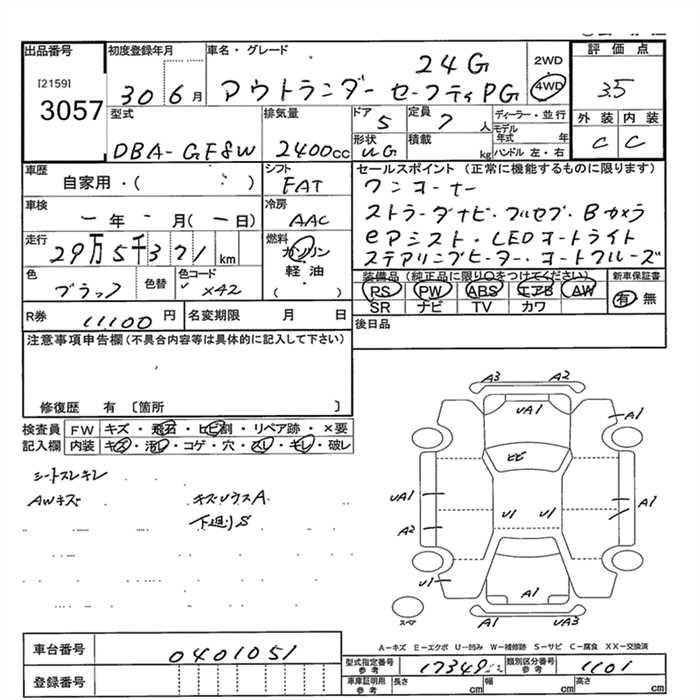 出品番号
[2159]
3057
初度登録年月
30 6月
車名・グレード
24G
アウトランダー セーフティPG
2WD
4WD
評価点
3.5
外装 内装
C C
型式
DBA-GF8W
排気量
2400cc
ドア
5
定員
7人
形状
UG
積載
kg
ディーラー・並行
モデル年式 年
ハンドル 左・右
車歴
自家用・( )
シフト
FAT
車検
ー年 ー月(ー日)
冷房
AAC
走行
29万5千371km
燃料
ガソリン
軽油
( )
色
ブラック
色替
色コード
X42
セールスポイント(正常に機能するものに限ります)
ワンオーナー
ストラーダナビ・フルセグ・Bカメラ
eアシスト・LEDオートライト
ステアリングヒーター・オートクルーズ
装備品(純正品に限り○をつけてください)
PS PW ABS エアB AW
SR ナビ TV カワ
新車保証書
有 無
R券 11100円
名変期限 月 日
後日品
注意事項申告欄(不具合内容等は具体的に記入して下さい)
修復歴 有 〔箇所 〕
検査員記入欄
FW キズ・飛石・ヒビ割・リペア跡・×要
内装 キズ・汚レ・コゲ・穴・スレ・キレ・破レ
シートスレキレ
AWキズ
キズ・ソウスA
下廻りS
A3 A2
UA1
A1
ヒビ
UA1
U1 U1
A1
A2
U1
A1
スペア
A1 UA3
A-キズ E-エクボ U-凹み W-補修跡 S-サビ C-腐食 XX-交換済
車台番号 0401051
登録番号
型式指定番号 参考 17349
類別区分番号 参考 1101
車庫証明用 参考 長さ cm 幅 cm 高さ cm